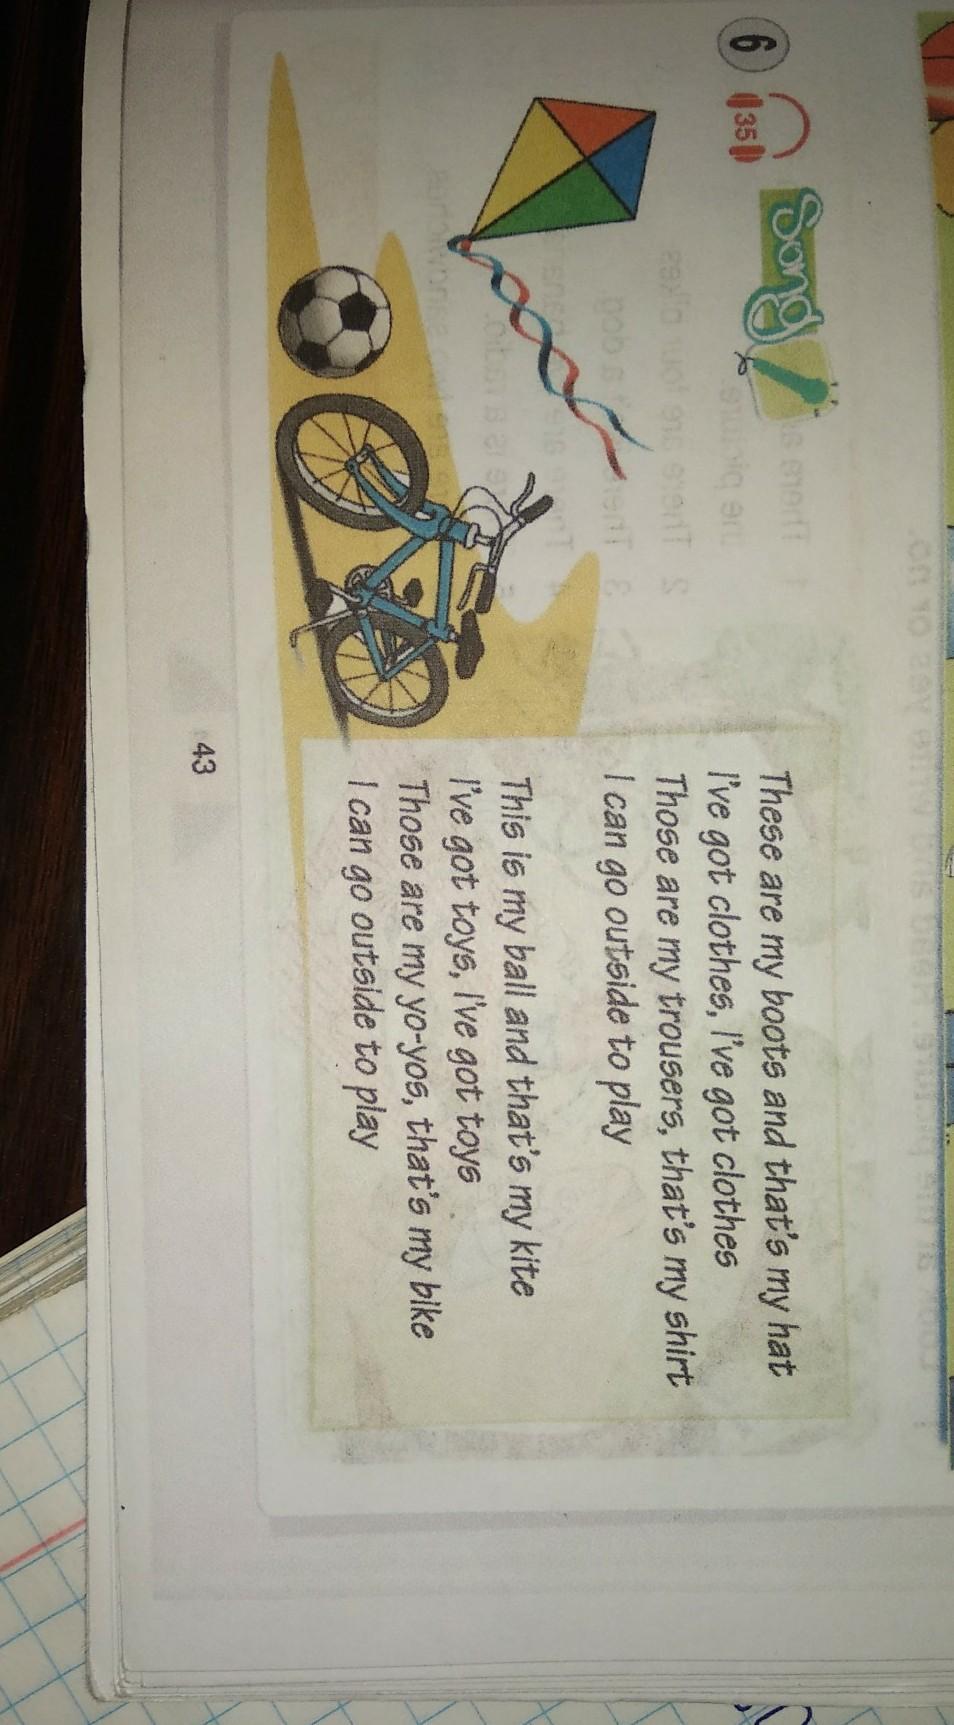 6
35
Song
These are my boots and that's my hat
I've got clothes, I've got clothes
Those are my trousers, that's my shirt
I can go outside to play
This is my ball and that's my kite
I've got toys, I've got toys
Those are my yo-yos, that's my bike
I can go outside to play
43